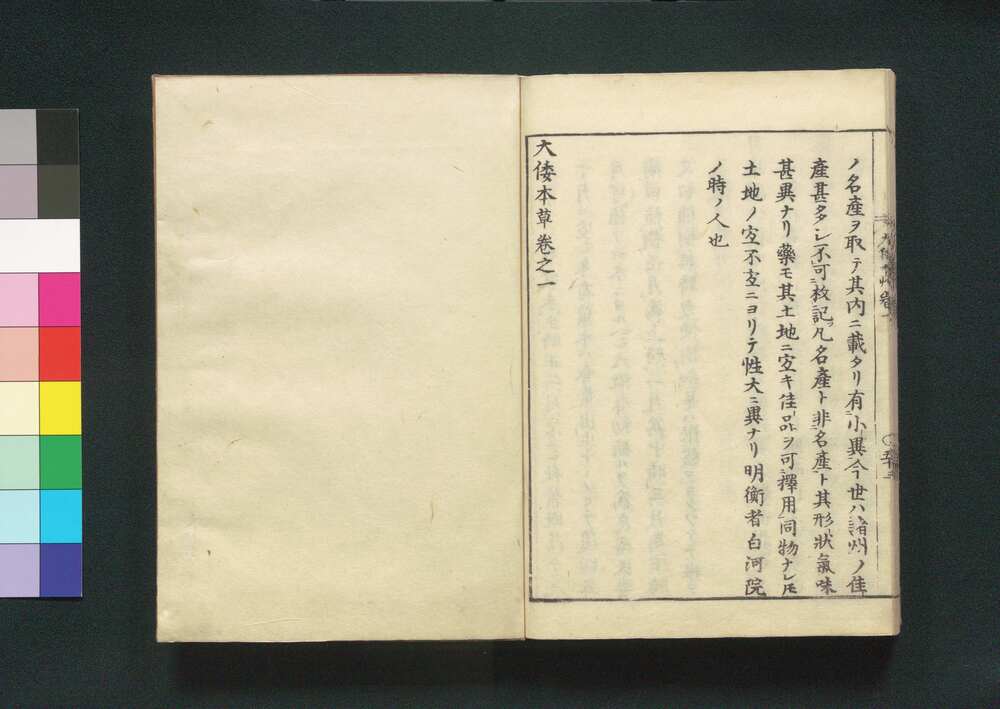 ノ名產ヲ取テ其内ニ載タリ有小異今世ハ諸州ノ佳
產甚多シ不可枚記凡名產ト非名產ト其形狀氣味
甚異ナリ藥モ其土地ニ宜キ佳品ヲ可擇用同物ナレ𪜈
土地ノ宜不宜ニヨリテ性大ニ異ナリ明衡者白河院
ノ時ノ人也
大倭本草卷之一